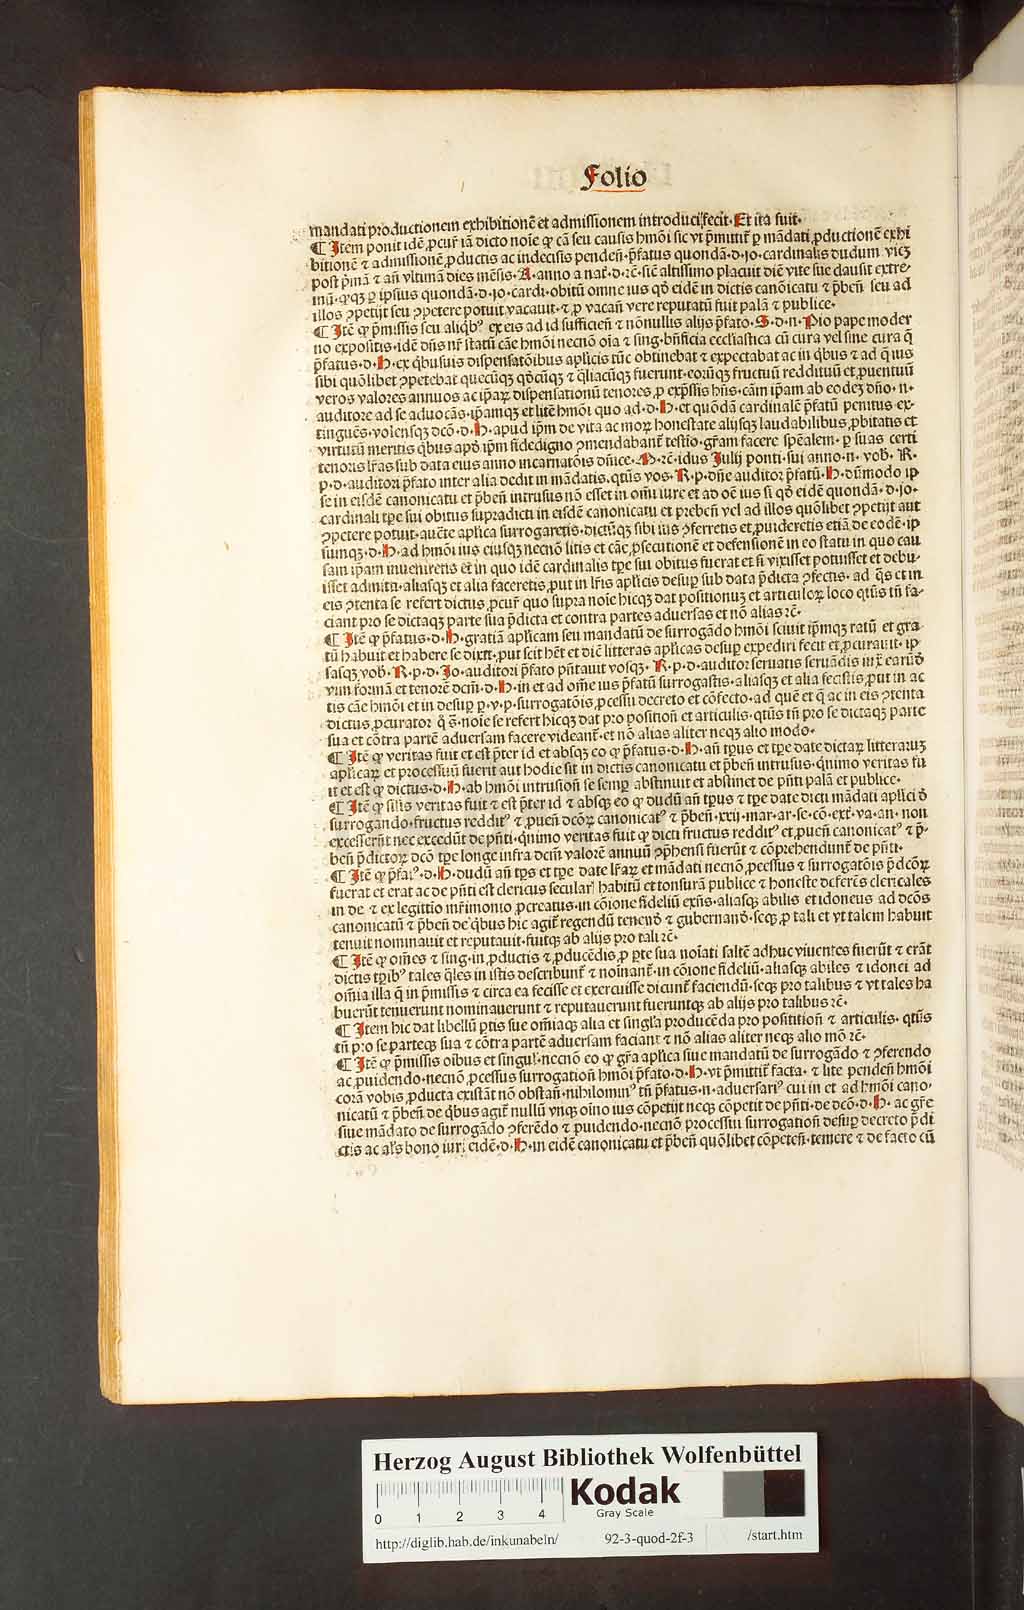 Folio
mandati productionem exhibitionē et admissionem introduci fecit. Et ita fuit.
¶ Item ponit idē ꝓcur̄ iā dicto noīe ꝙ cā seu causis hmōi sic vt p̄mittit̄ ꝑ mādati ꝓductionē exhi
bitionē ⁊ admissionē ꝓductis ac indecisis penden̄ p̄fatus quondā. d. io. cardinalis dudum vicꝫ
post p̄mā ⁊ an̄ vltimā dies mēsis. A. anno a nat̄. d. ⁊c̄. sic̄ altissimo placuit diē vite sue clausit extre/
mū. ꝙꝙ ꝑ ipsius quondā. d. io. cardi. obitū omne ius qd̄ eidē in dictis canōicatu ⁊ p̄ben̄ seu ad
illos ꝯpetijt seu ꝯpetere potuit vacauit. ⁊ ꝓ vacan̄ vere reputatū fuit palā ⁊ publice.
¶ Itē ꝙ p̄missis seu aliqbꝰ ex eis ad id sufficien̄ ⁊ nōnullis alijs p̄fato. S. d. n. Pio pape moder
no expositis. idē dn̄s nr̄ statū cāe hmōi necnō oīa ⁊ sing. bn̄ficia eccl̄iastica cū cura vel sine cura q̄
p̄fatus. d. H. ex qbusuis dispensatōibus aplicis tūc obtinebat ⁊ expectabat ac in qbus ⁊ ad q̄ ius
sibi quōlibet ꝯpetebat quecūqꝫ qōcūqꝫ ⁊ q̄liacūqꝫ fuerunt. eorūqꝫ fructuū reddituū et ꝓuentuū
veros valores annuos ac ipaꝝ dispensationū tenores ꝓ exp̄ssis hn̄s. cām ipam ab eodeꝫ dn̄o. n.
auditore ad se aduocās. ipamqꝫ et litē hmōi quo ad. d. H. et quōdā cardinalē p̄fatū penitus ex/
tinguēs. volensqꝫ dcō. d. H. apud ip̄m de vita ac moꝝ honestate alijsqꝫ laudabilibus ꝓbitatis et
virtutū meritis qbus apō ip̄m fidedigno ꝯmendabant̄ testio. gr̄am facere spēalem. ꝑ suas certi
tenoris lr̄as sub data eius anno incarnatōis dn̄ice. M. ⁊c̄. idus Julij ponti. sui anno. n. vob. R.
p. d. auditori p̄fato inter alia dedit in mādatis. qtūs vos. R. p. dn̄e auditor p̄fatū. H. dūmodo ip
se in eisdē canonicatu et p̄ben̄ intrusus nō esset in omī iure et ad oē ius si qd̄ eidē quondā. d. jo.
cardinali tꝑe sui obitus supradicti in eisdē canonicatu et preben̄ vel ad illos quōlibet ꝯpetijt aut
ꝯpetere potuit. auc̄te aplica surrogaretis. dictūqꝫ sibi ius ꝯferretis et ꝓuideretis etiā de eodē. ip
sumqꝫ. d. H. ad hmōi ius eiusqꝫ necnō litis et cāe ꝓsecutionē et defensionē in eo statu in quo cau
sam ipam inueniretis et in quo idē cardinalis tꝑe sui obitus fuerat et si vixisset potuisset et debu/
isset admitti. aliasqꝫ et alia faceretis ꝓut in lr̄is aplicis desuꝑ sub data p̄dicta ꝯfectis. ad q̄s et in
eis ꝯtenta se refert dictus ꝓcur̄ quo supra noīe hicqꝫ dat positionuꝫ et articuloꝝ loco qtūs tn̄ fa/
ciant pro se dictaqꝫ parte sua p̄dicta et contra partes aduersas et nō alias ⁊c̄.
¶ Itē ꝙ p̄fatus. d. H. gratiā aplicam seu mandatū de surrogādo hmōi sciuit ip̄mqꝫ ratū et gra/
tū habuit et habere se dixit. ꝓut scit hēt et diē litteras aplicas desuꝑ expediri fecit et ꝓcurauit. ip
sasqꝫ vob. R. p. d. Jo. auditori p̄fato pn̄tauit vosqꝫ. R. p. d. auditor seruatis seruādis iuxͣ earū
vim formā et tenorē dcm̄. d. H. in et ad om̄e ius p̄fatū surrogastis. aliasqꝫ et alia fecistis ꝓut in ac
tis cāe hmōi et in desuꝑ ꝑ. v. p. surrogatōis ꝓcessu decreto et cōfecto. ad quē et q̄ ac in eis ꝯtenta
dictus ꝓcurator q̄ s̄. noīe se refert hicqꝫ dat pro position̄ et articulis. qtūs tn̄ pro se dictaqꝫ parte
sua et cōtra partē aduersam facere videant̄. et nō alias aliter neqꝫ alio modo.
¶ Itē ꝙ veritas fuit et est p̄ter id et absqꝫ eo ꝙ p̄fatus. d. H. an̄ tꝑus et tꝑe date dictaꝝ litteraruꝫ
aplicaꝝ et processuū fuerit aut hodie sit in dictis canonicatu et p̄ben̄ intrusus. qnimo veritas fu
it et est ꝙ dictus. d. H. ab hmōi intrusion̄ se semꝑ abstinuit et abstinet de pn̄ti palā et publice.
¶ Itē ꝙ sil̄is veritas fuit ⁊ est p̄ter id ⁊ absqꝫ eo ꝙ dudū an̄ tꝑus ⁊ tꝑe date dicti mādati aplici d̄
surrogando. fructus redditꝰ ⁊ ꝓuen̄ dcōꝝ canonicatꝰ ⁊ p̄ben̄. xxij. mar. ar. se. cō. ext̄. va. an. non
excesserūt nec excedūt de pn̄ti. qnimo veritas fuit ꝙ dicti fructus redditꝰ et ꝓuen̄ canonicatꝰ ⁊ p̄/
ben̄ p̄dictoꝝ dcō tꝑe longe infra dcm̄ valorē annuū ꝯp̄hensi fuerūt ⁊ cōprehendunt̄ de pn̄ti.
¶ Itē ꝙ p̄fatꝰ. d. H. dudū an̄ tꝑs et tꝑe date lr̄aꝝ et mādati necnō ꝓcessus ⁊ surrogatōis p̄dcōꝝ
fuerat et erat ac de pn̄ti est clericus secular̄ habitū et tonsurā publice ⁊ honeste deferēs clericales
in de ⁊ ex legittio mr̄imonio ꝓcreatus. in cōione fideliū exn̄s. aliasqꝫ abilis et idoneus ad dcōs
canonicatū ⁊ p̄ben̄ de qbus hic agit̄ regendū tenend̄ ⁊ gubernand̄. seqꝫ ꝓ tali et vt talem habuit
tenuit nominauit et reputauit. fuitqꝫ ab alijs pro tali ⁊c̄.
¶ Itē ꝙ om̄es ⁊ sing. in ꝓductis ⁊ ꝓducēdis ꝓ ꝑte sua noīati saltē adhuc viuentes fuerūt ⁊ erāt
dictis tꝑibꝰ tales q̄les in istis describunt̄ ⁊ noīnant̄. in cōione fideliū. aliasqꝫ abiles ⁊ idonei ad
om̄ia illa q̄ in p̄missis ⁊ circa ea fecisse et exercuisse dicunt̄ faciendū. seqꝫ pro talibus ⁊ vt tales ha
buerūt tenuerunt nominauerunt ⁊ reputauerunt fueruntqꝫ ab alijs pro talibus ⁊c̄.
¶ Item hic dat libellū ꝑtis sue om̄iaqꝫ alia et singl̄a producēda pro positition̄ ⁊ articulis. qtūs
tn̄ pro se parteqꝫ sua ⁊ cōtra partē aduersam faciant ⁊ nō alias aliter neqꝫ alio mō ⁊c̄.
¶ Itē ꝙ p̄missis oībus et singul. necnō eo ꝙ gr̄a aplica siue mandatū de surrogādo ⁊ ꝯferendo
ac ꝓuidendo. necnō ꝓcessus surrogation̄ hmōi p̄fato. d. H. vt p̄mittit̄ facta. ⁊ lite penden̄ hmōi
corā vobis ꝓducta existāt nō obstan̄. nihilominꝰ tn̄ p̄fatus. n. aduersariꝰ cui in et ad hmōi cano.
nicatū ⁊ p̄ben̄ de qbus agit̄ nullū vnqꝫ oīno ius cōpetijt neqꝫ cōpetit de pn̄ti. de dcō. d. H. ac gr̄e
siue mādato de surrogādo ꝯferēdo ⁊ ꝓuidendo. necnō processui surrogation̄ desuꝑ decreto p̄di
ctis ac al̄s bono iuri eidē. d. H. in eidē canonicatu et p̄ben̄ quōlibet cōpeten̄. temere ⁊ de facto cū
Herzog August Bibliothek Wolfenbüttel
0 1 2 3 4
Kodak
Gray Scale
http://diglib.hab.de/inkunabeln/ 92-3-quod-2f-3 /start.htm